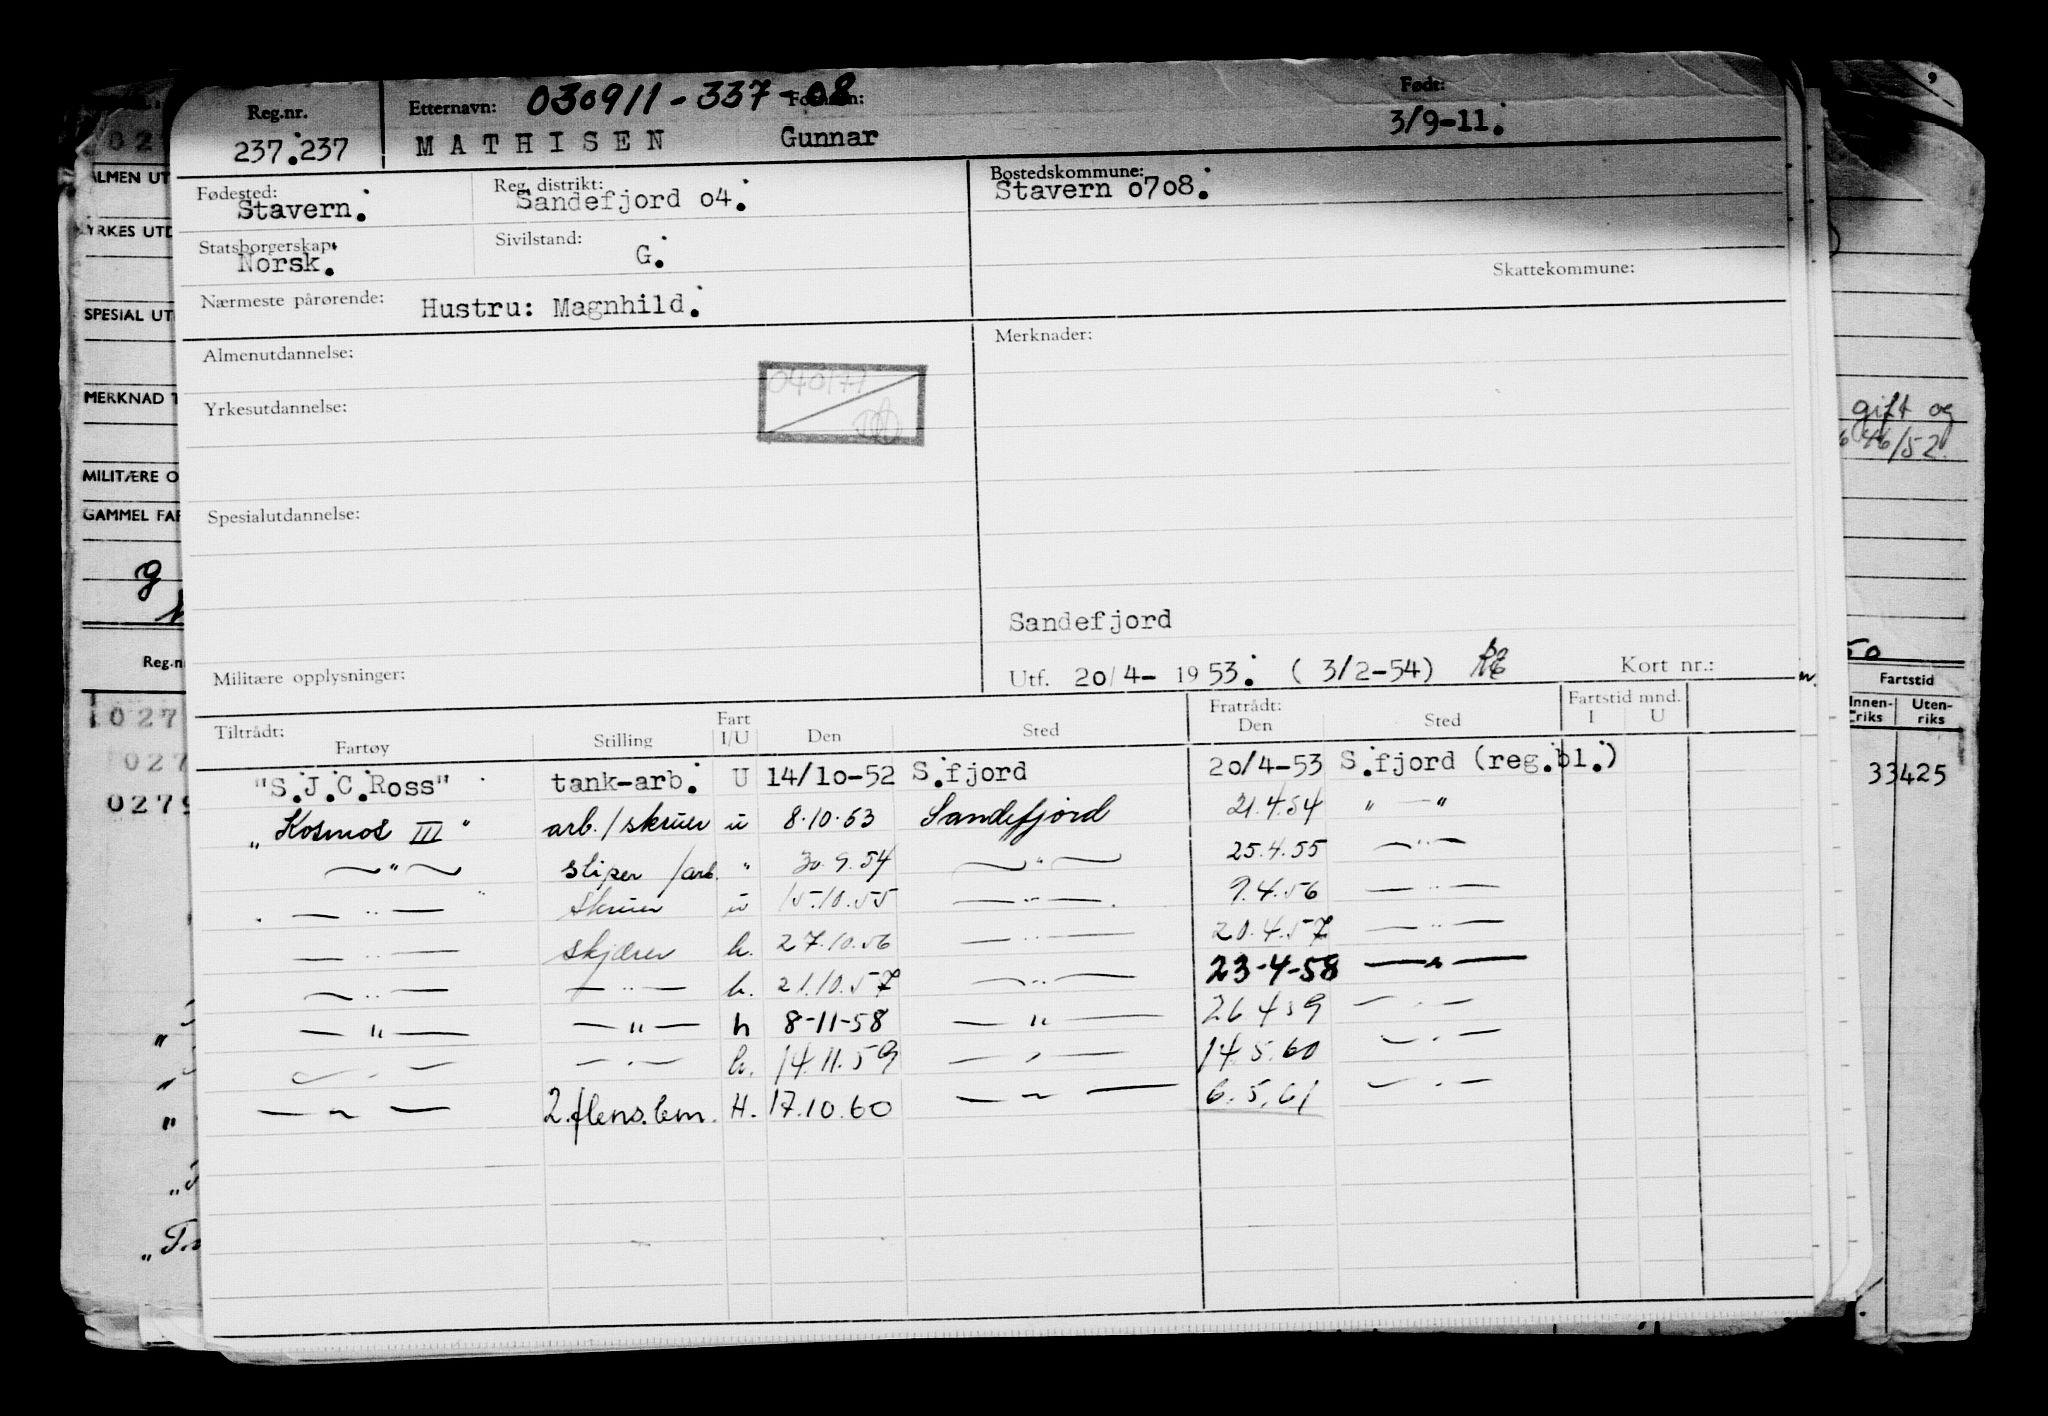 Reg.nr. Etternavn: 030911-337-08 Født:
237.237 MATHISEN Gunnar 3/9-11.
Fødested: Reg. distrikt: Bostedskommune:
Stavern. Sandefjord 04. Stavern 0708.
Statsborgerskap: Sivilstand:
Norsk. G.
Skattekommune:
Nærmeste pårørende: Hustru: Magnhild.
Almenutdannelse: Merknader:
040177
Yrkesutdannelse:
Spesialutdannelse:
Sandefjord
Militære opplysninger: Utf. 20/4- 1953. ( 3/2-54) Kort nr.:
Tiltrådt: Fart Fratrådt: Fartstid mnd.
Fartøy Stilling I/U Den Sted Den Sted I U
"S.J.C.Ross" tank-arb. U 14/10-52 S.fjord 20/4-53 S.fjord (reg.bl.)
"Kosmos III" arb./skruer u 8.10.53 Sandefjord 21.4.54 " — "
— " — sliper /arb. " 30.9.54 — " — 25.4.55 — " —
— " — skruer u 15.10.55 — " — 9.4.56 — " —
— " — skjærer h. 27.10.56 — " — 20.4.57 — " —
— " — — " — h. 21.10.57 — " — 23-4-58 — " —
— " — — " — h 8-11-58 — " — 26 4 59 — " —
— " — — " — h. 14.11.59 — " — 14.5.60 — " —
— " — 2.flens.lem. H. 17.10.60 — " — 6.5.61 — " —
ALMEN UT
YRKES UTD
SPESIAL UT
MERKNAD T
MILITÆRE O
GAMMEL FAR
g
Reg.n
027
027
0279
gift og
46/52
50
Fartstid
Innen- Uten-
riks riks
33425